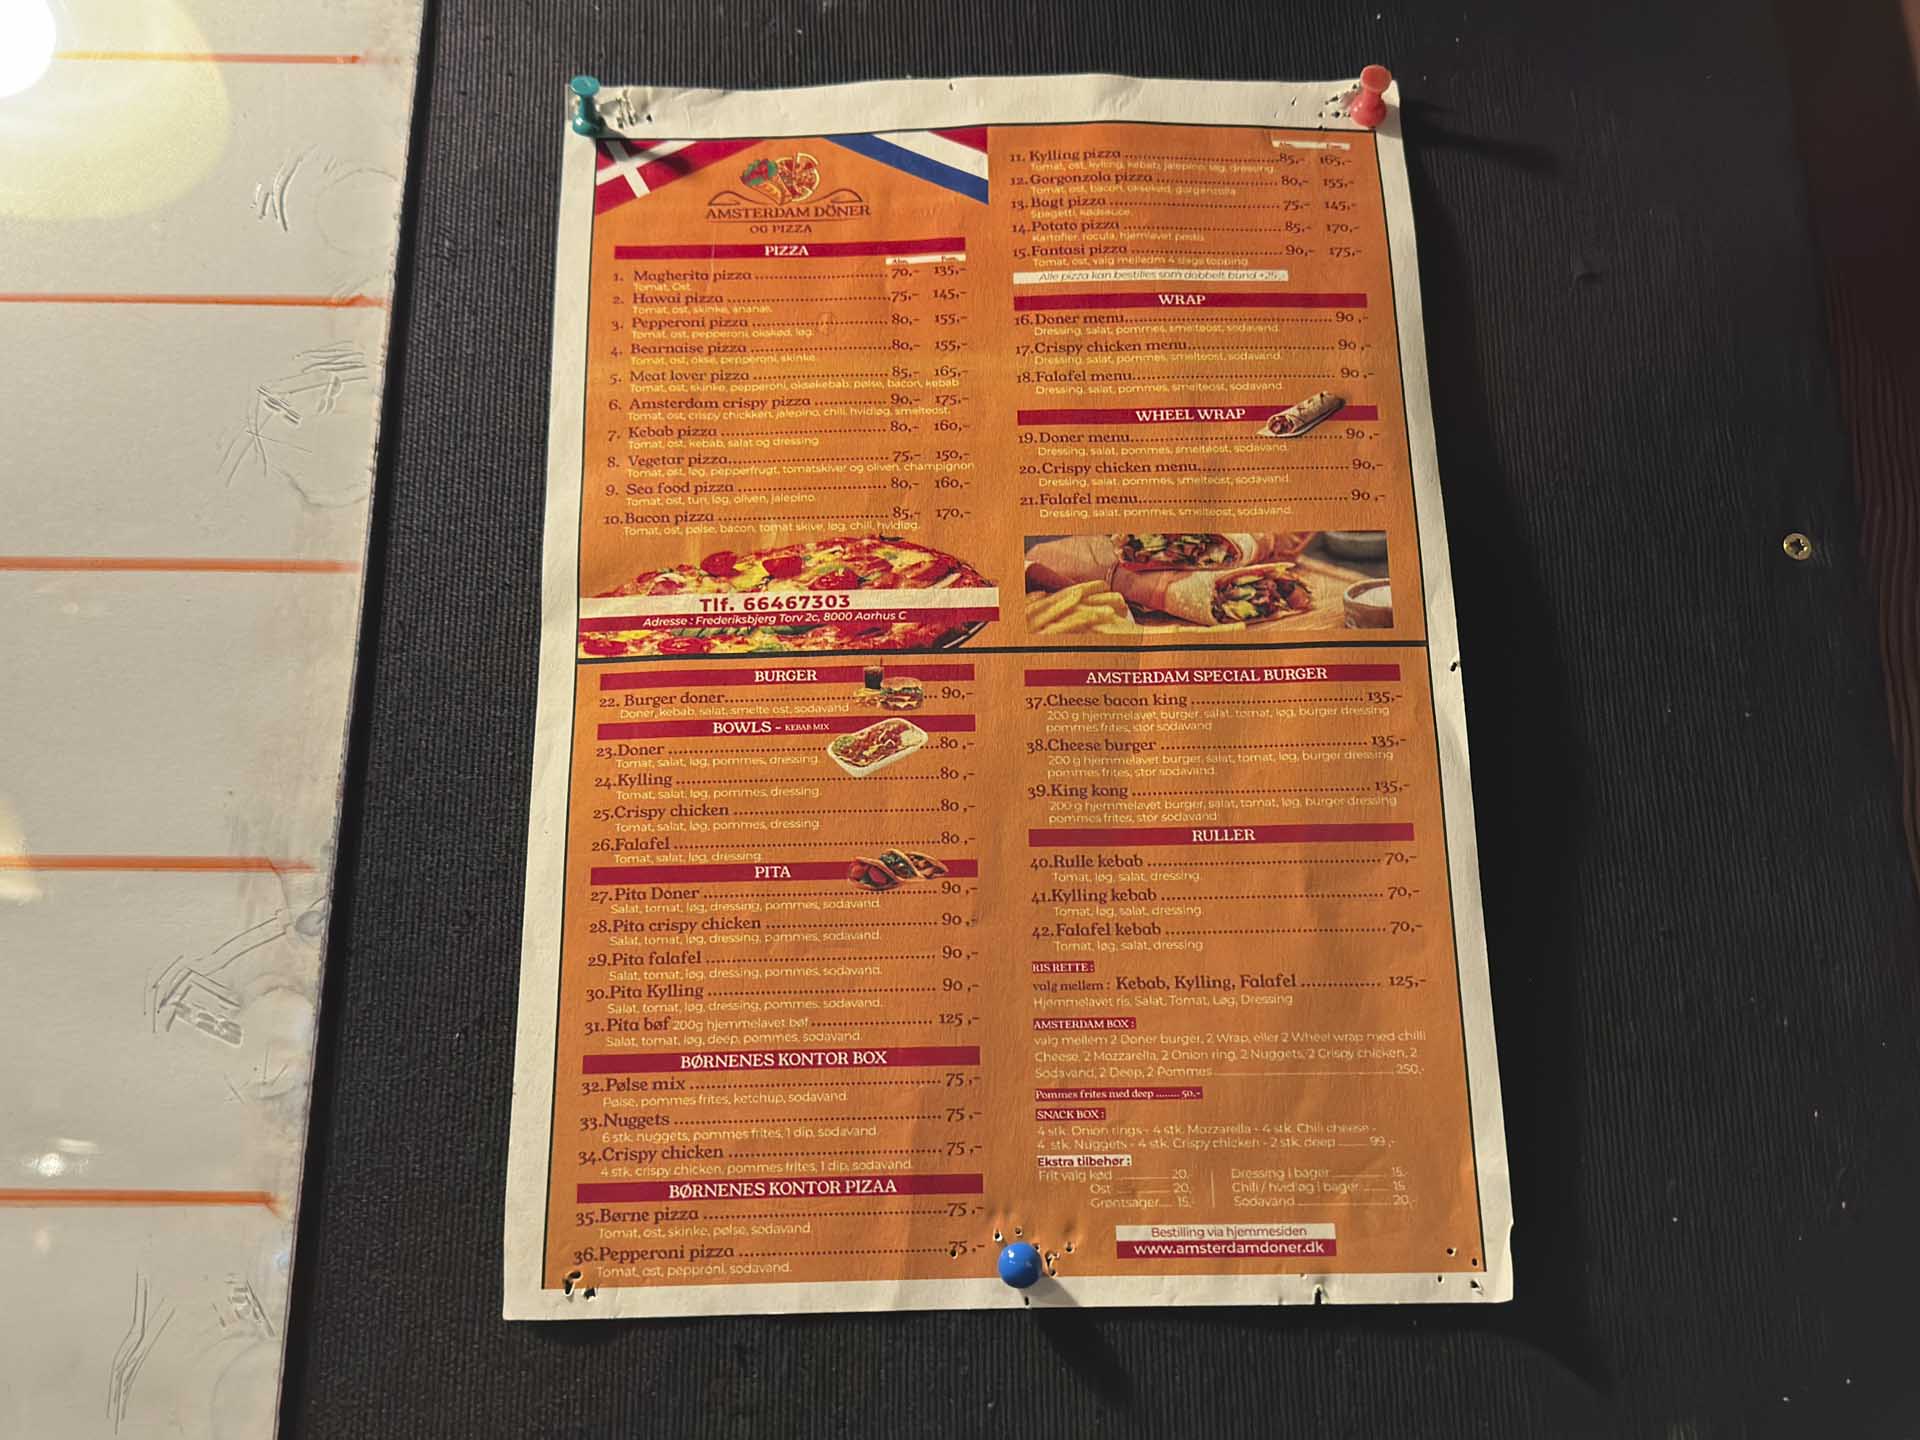 AMSTERDAM DÖNER
OG PIZZA
PIZZA
Alm. Fam.
1. Magherita pizza 70,- 135,-
Tomat, Ost.
2. Hawai pizza 75,- 145,-
Tomat, ost, skinke, ananas.
3. Pepperoni pizza 80,- 155,-
Tomat, ost, pepperoni, okskød, løg.
4. Bearnaise pizza 80,- 155,-
Tomat, ost, okse, pepperoni, skinke.
5. Meat lover pizza 85,- 165,-
Tomat, ost, skinke, pepperoni, oksekebab, pølse, bacon, kebab
6. Amsterdam crispy pizza 90,- 175,-
Tomat, ost, crispy chickken, jalepino, chili, hvidløg, smelteost.
7. Kebab pizza 80,- 160,-
Tomat, ost, kebab, salat og dressing
8. Vegetar pizza 75,- 150,-
Tomat, ost, løg, pepperfrugt, tomatskiver og oliven, champignon
9. Sea food pizza 80,- 160,-
Tomat, ost, tun, løg, oliven, jalepino.
10. Bacon pizza 85,- 170,-
Tomat, ost, pølse, bacon, tomat skive, løg, chili, hvidløg.
Tlf. 66467303
Adresse : Frederiksbjerg Torv 2c, 8000 Aarhus C
Alm. Fam.
11. Kylling pizza 85,- 165,-
Tomat, ost, kylling, kebab, jalepino, løg, dressing
12. Gorgonzola pizza 80,- 155,-
Tomat, ost, bacon, oksekød, gorgonzola
13. Bagt pizza 75,- 145,-
Spagetti, kødsauce.
14. Potato pizza 85,- 170,-
Kartofler, rocula, hjemlavet pesto
15. Fantasi pizza 90,- 175,-
Tomat, ost, valg melledm 4 slags topping
Alle pizza kan bestilles som dobbelt bund +25,-
WRAP
16. Doner menu 90 ,-
Dressing, salat, pommes, smelteost, sodavand.
17. Crispy chicken menu 90 ,-
Dressing, salat, pommes, smelteost, sodavand.
18. Falafel menu 90 ,-
Dressing, salat, pommes, smelteost, sodavand.
WHEEL WRAP
19. Doner menu 90 ,-
Dressing, salat, pommes, smelteost, sodavand.
20. Crispy chicken menu 90,-
Dressing, salat, pommes, smelteost, sodavand.
21. Falafel menu 90 ,-
Dressing, salat, pommes, smelteost, sodavand.
BURGER
22. Burger doner 90,-
Doner, kebab, salat, smelte ost, sodavand
BOWLS - KEBAB MIX
23. Doner 80 ,-
Tomat, salat, løg, pommes, dressing.
24. Kylling 80 ,-
Tomat, salat, løg, pommes, dressing.
25. Crispy chicken 80 ,-
Tomat, salat, løg, pommes, dressing
26. Falafel 80 ,-
Tomat, salat, løg, dressing
PITA
27. Pita Doner 90 ,-
Salat, tomat, løg, dressing, pommes, sodavand.
28. Pita crispy chicken 90 ,-
Salat, tomat, løg, dressing, pommes, sodavand.
29. Pita falafel 90 ,-
Salat, tomat, løg, dressing, pommes, sodavand.
30. Pita Kylling 90 ,-
Salat, tomat, løg, dressing, pommes, sodavand.
31. Pita bøf 200g hjemmelavet bøf 125 ,-
Salat, tomat, løg, deep, pommes, sodavand.
BØRNENES KONTOR BOX
32. Pølse mix 75 ,-
Pølse, pommes frites, ketchup, sodavand.
33. Nuggets 75 ,-
6 stk. nuggets, pommes frites, 1 dip, sodavand.
34. Crispy chicken 75 ,-
4 stk. crispy chicken, pommes frites, 1 dip, sodavand.
BØRNENES KONTOR PIZAA
35. Børne pizza 75 ,-
Tomat, ost, skinke, pølse, sodavand.
36. Pepperoni pizza 75 ,-
Tomat, ost, pepproni, sodavand.
AMSTERDAM SPECIAL BURGER
37. Cheese bacon king 135,-
200 g hjemmelavet burger, salat, tomat, løg, burger dressing
pommes frites, stor sodavand
38. Cheese burger 135,-
200 g hjemmelavet burger, salat, tomat, løg, burger dressing
pommes frites, stor sodavand.
39. King kong 135,-
200 g hjemmelavet burger, salat, tomat, løg, burger dressing
pommes frites, stor sodavand
RULLER
40. Rulle kebab 70,-
Tomat, løg, salat, dressing.
41. Kylling kebab 70,-
Tomat, løg, salat, dressing.
42. Falafel kebab 70,-
Tomat, løg, salat, dressing
RIS RETTE :
valg mellem : Kebab, Kylling, Falafel 125,-
Hjemmelavet ris, Salat, Tomat, Løg, Dressing
AMSTERDAM BOX :
valg mellem 2 Doner burger, 2 Wrap, eller 2 Wheel wrap med chilli
Cheese, 2 Mozzarella, 2 Onion ring, 2 Nuggets, 2 Crispy chicken, 2
Sodavand, 2 Deep, 2 Pommes 250,-
Pommes frites med deep ........ 50,-
SNACK BOX :
4 stk. Onion rings - 4 stk. Mozzarella - 4 stk. Chili cheese -
4 stk. Nuggets - 4 stk. Crispy chicken - 2 stk. deep 99 ,-
Ekstra tilbehør :
Frit valg kød 20,-
Ost 20,-
Grøntsager 15,-
Dressing i bager 15,-
Chili / hvidløg i bager 15
Sodavand 20,-
Bestilling via hjemmesiden
www.amsterdamdoner.dk